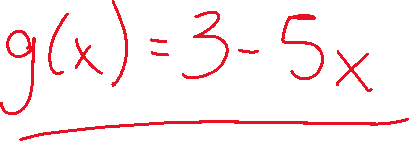 g(x) = 3 - 5x